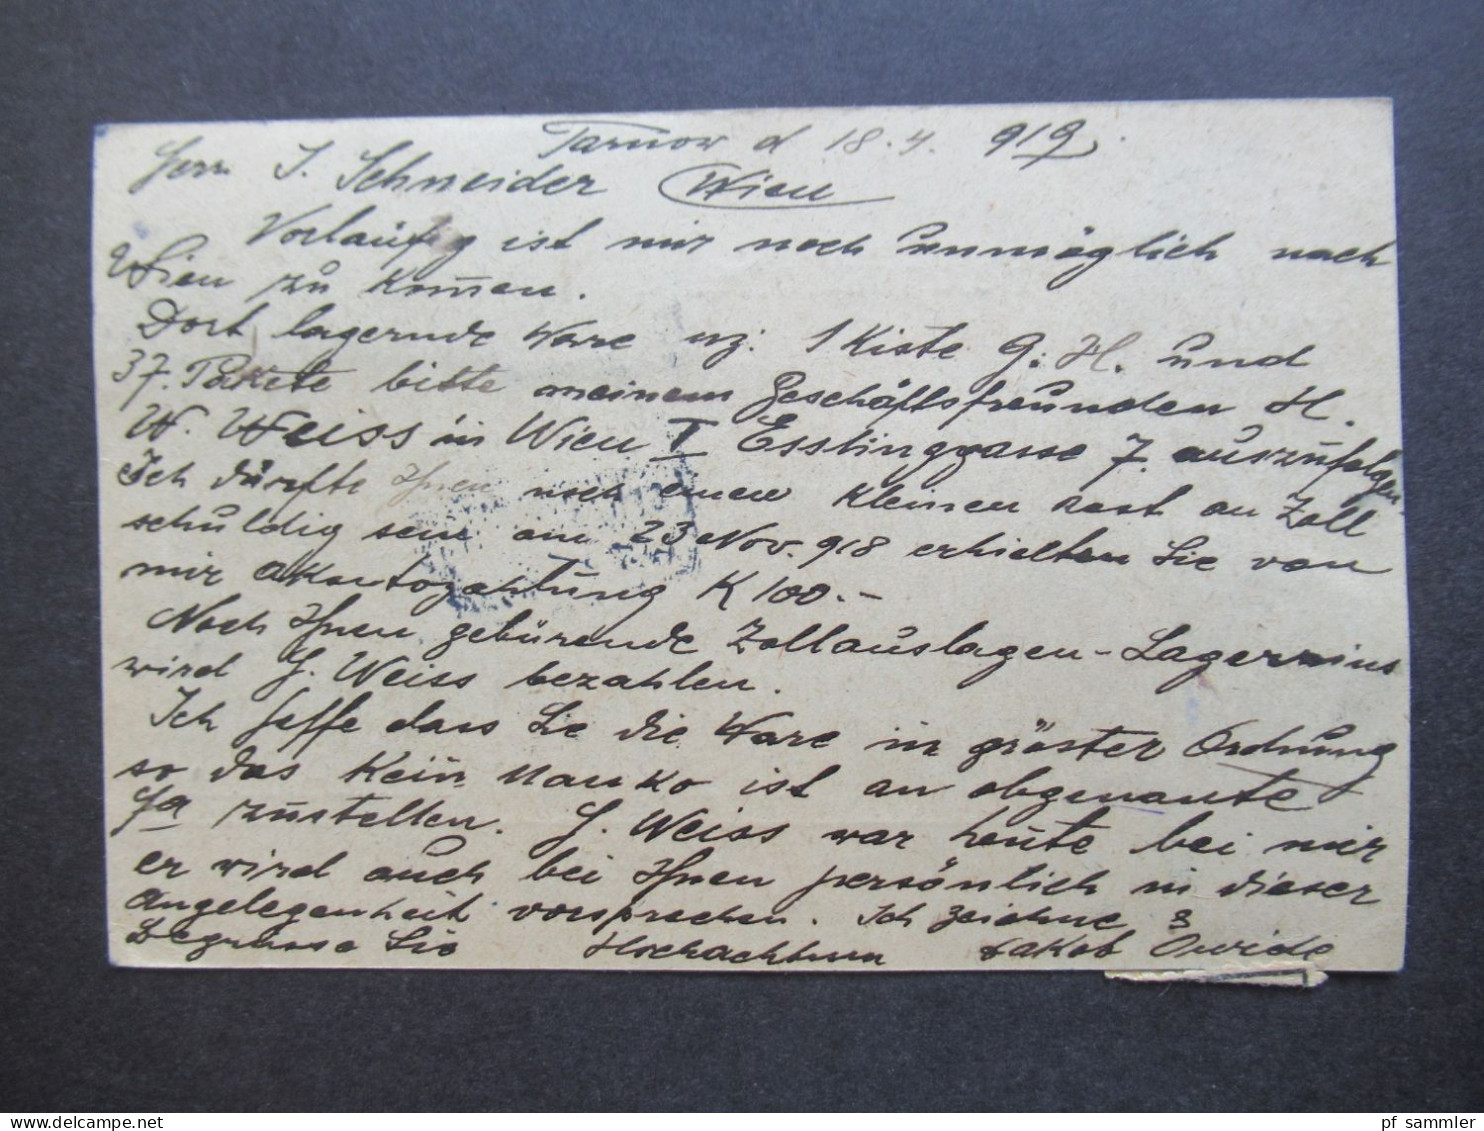 Tarnow d 18.4. 919.
Herr J. Schneider Wien
Vorläufig ist mir noch unmöglich nach
Wien zu kommen.
Dort lagernde Ware uz. 1 Kiste G. H. und
37. Pakete bitte meinem Geschäftsfreunden H.
W. Weiss in Wien I Esslinggasse 7. auszufolgen
Ich dürfte Ihnen noch einen kleinen Rest an Zoll
schuldig sein am 23 Nov. 918 erhielten Sie von
mir akontozahlung K 100.-
Noch Ihnen gebürende Zollauslagen - Lagerzins
wird H. Weiss bezahlen.
Ich hoffe dass Sie die Ware in gröster Ordnung
so das kein Manko ist an obgenante
Fa zustellen. H. Weiss war heute bei mir
er wird auch bei Ihnen persönlich in dieser
Angelegenheit vorsprechen. Ich zeichne
Begrüsse Sie Hochachtun Jakob
pf_sammler
www.delcampe.net